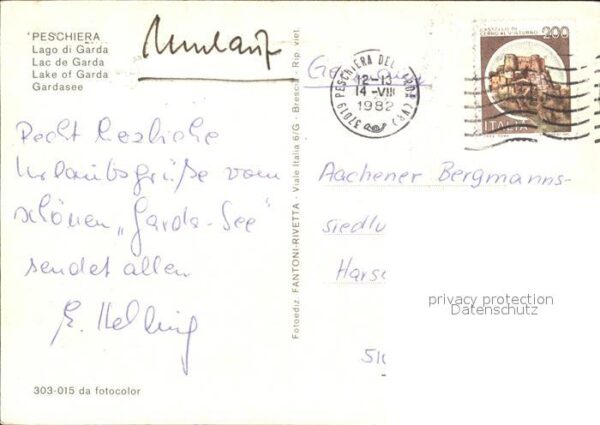 PESCHIERA
Lago di Garda
Lac de Garda
Lake of Garda
Gardasee
Recht herzliche
Urlaubsgrüße vom
schönen „Garda-See"
sendet allen
E. Helbing
303-015 da fotocolor
Fotoediz. FANTONI-RIVETTA - Viale Italia 6/G - Brescia - Rip. viet.
37019 PESCHIERA DEL GARDA (VR)
12-13
14-VIII
1982
CASTELLO DI
CERRO AL VOLTURNO
200
ITALIA
Aachener Bergmanns-
siedlu
Harsc
privacy protection
Datenschutz